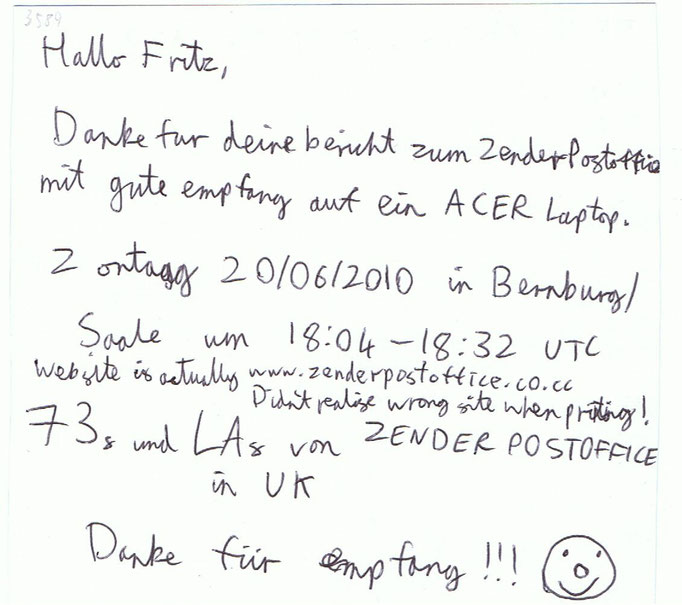 3589
Hallo Fritz,
Danke fur deine bericht zum ZenderPostoffice
mit gute empfang auf ein ACER Laptop.
Zontagg 20/06/2010 in Bernburg/
Saale um 18:04 - 18:32 UTC
website is actually www.zenderpostoffice.co.cc
Didn't realise wrong site when printing!
73s und LAs von ZENDER POSTOFFICE
in UK
Danke für empfang !!!